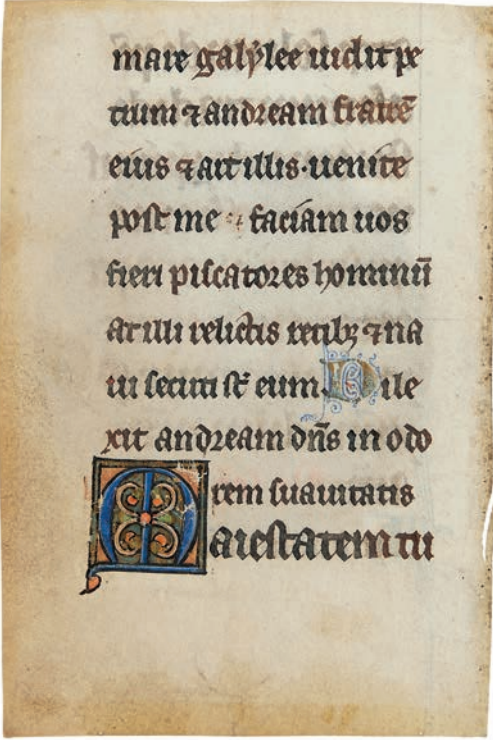 mare galylee uidit pe
trum ⁊ andream fratrē
eius ⁊ ait illis·uenite
post me ⁊ faciam uos
fieri piscatores hominū
at illi relictis retibꝫ ⁊ na
ui secuti st̄ eum. Dile
xit andream dn̄s in odo
rem suauitatis
Maiestatem tu